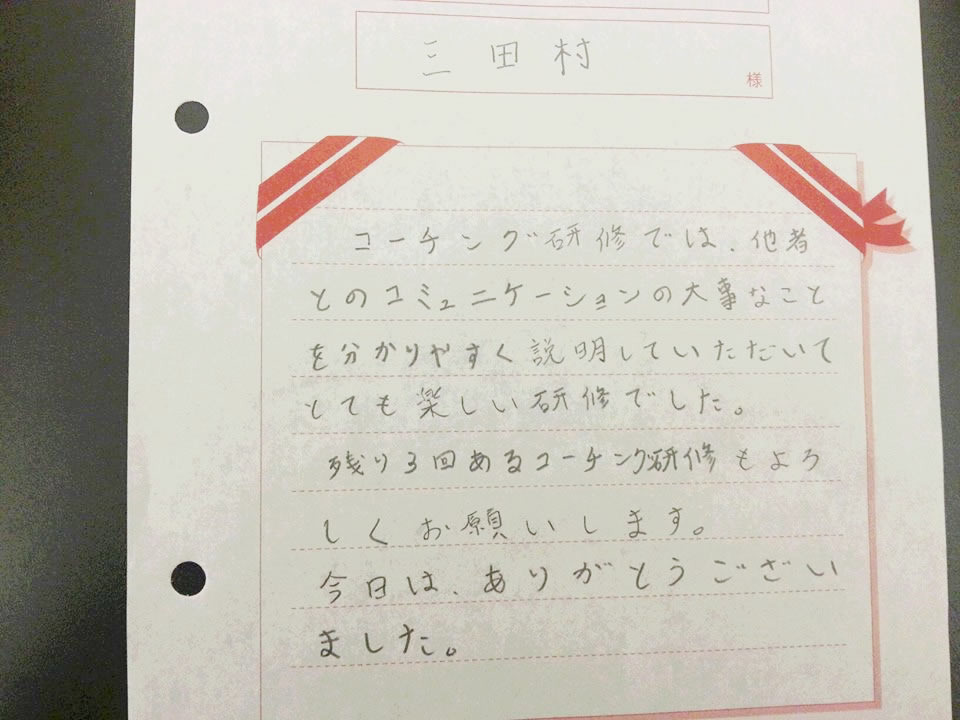 三田村
様
コーチング研修では、他者
とのコミュニケーションの大事なこと
を分かりやすく説明していただいて
とても楽しい研修でした。
残り3回あるコーチング研修もよろ
しくお願いします。
今日は、ありがとうござい
ました。